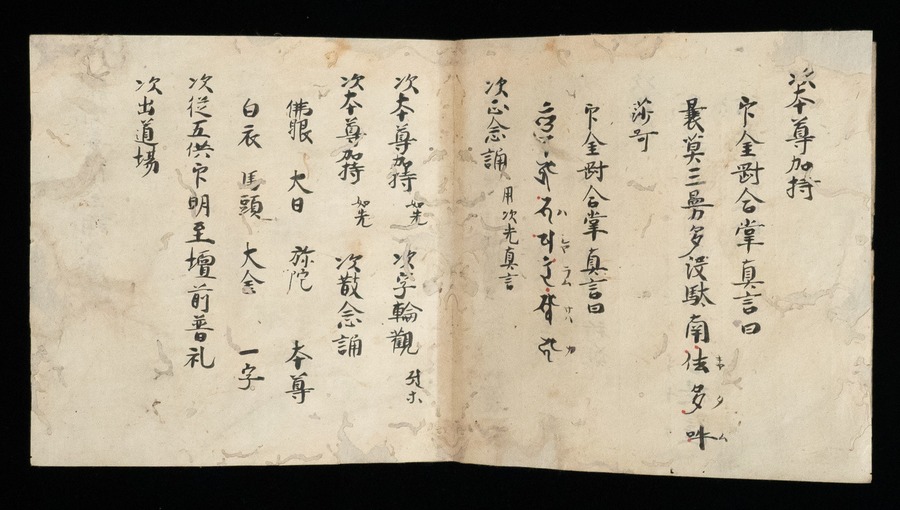 次本尊加持
印金剛合掌 真言曰
曩莫三曼多没駄南 佉 多 吽
莎呵
印金剛合掌 真言曰
次正念誦 用次光真言
次本尊加持 如先 次字輪觀
次本尊加持 如先 次散念誦
佛眼 大日 弥陀 本尊
白衣 馬頭 大金 一字
次後五供印明至壇前普礼
次出道場